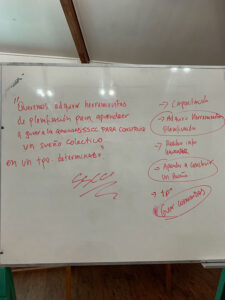 "Queremos adquirir herramientas
de planificación para aprender
a guiar la PARA CONSTRUIR
un sueño colectivo
en un tpo. determinado
→ Capacitación
→ Adquirir herramientas
planificación
→ Recibir info
→ Aprender a construir
un sueño
→ tpo
Guiar